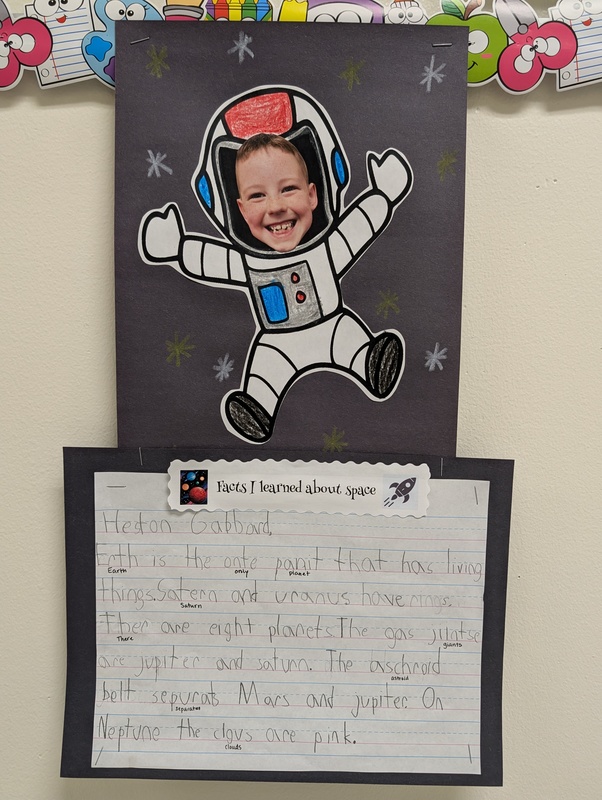 Facts I learned about space
Heston Gabbard,
Erth is the onte panit that has living
Earth only planet
things. Satern and uranus have rings.
Saturn
Ther are eight planets. The gas jiintse
There giants
are jupiter and saturn. The aschroid
astroid
belt sepurats Mars and jupiter On
separates
Neptune the clous are pink.
clouds